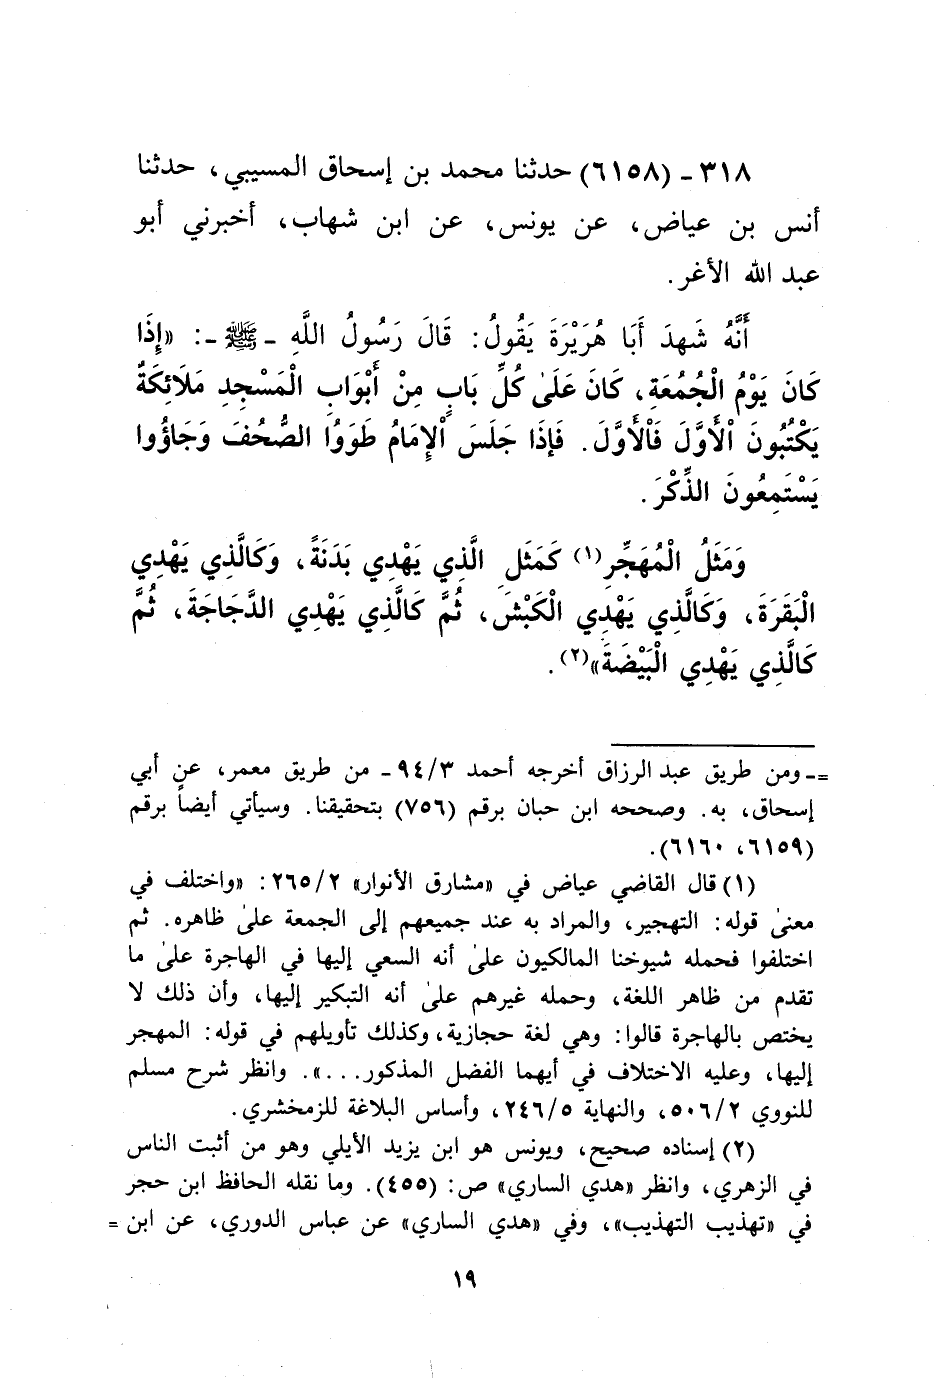 ٣١٨ - (٦١٥٨) حدثنا محمد بن إسحاق المسيبي، حدثنا
أنس بن عياض، عن يونس، عن ابن شهاب، أخبرني أبو
عبد الله الأغر.
أَنَّهُ شَهِدَ أَبَا هُرَيْرَةَ يَقُولُ: قَالَ رَسُولُ اللَّهِ - ﷺ -: «إِذَا
كَانَ يَوْمُ الْجُمُعَةِ، كَانَ عَلَىٰ كُلِّ بَابٍ مِنْ أَبْوَابِ الْمَسْجِدِ مَلَائِكَةٌ
يَكْتُبُونَ الْأَوَّلَ فَالْأَوَّلَ. فَإِذَا جَلَسَ الْإِمَامُ طَوَوُا الصُّحُفَ وَجَاؤُوا
يَسْتَمِعُونَ الذِّكْرَ.
وَمَثَلُ الْمُهَجِّرِ(١) كَمَثَلِ الَّذِي يَهْدِي بَدَنَةً، وَكَالَّذِي يَهْدِي
الْبَقَرَةَ، وَكَالَّذِي يَهْدِي الْكَبْشَ، ثُمَّ كَالَّذِي يَهْدِي الدَّجَاجَةَ، ثُمَّ
كَالَّذِي يَهْدِي الْبَيْضَةَ»(٢).
= - ومن طريق عبد الرزاق أخرجه أحمد ٩٤/٣ - من طريق معمر، عن أبي
إسحاق، به. وصححه ابن حبان برقم (٧٥٦) بتحقيقنا. وسيأتي أيضاً برقم
(٦١٥٩، ٦١٦٠).
(١) قال القاضي عياض في «مشارق الأنوار» ٢٦٥/٢: «واختلف في
معنىٰ قوله: التهجير، والمراد به عند جميعهم إلى الجمعة علىٰ ظاهره. ثم
اختلفوا فحمله شيوخنا المالكيون علىٰ أنه السعي إليها في الهاجرة علىٰ ما
تقدم من ظاهر اللغة، وحمله غيرهم علىٰ أنه التبكير إليها، وأن ذلك لا
يختص بالهاجرة قالوا: وهي لغة حجازية، وكذلك تأويلهم في قوله: المهجر
إليها، وعليه الاختلاف في أيهما الفضل المذكور...». وانظر شرح مسلم
للنووي ٥٠٦/٢، والنهاية ٢٤٦/٥، وأساس البلاغة للزمخشري.
(٢) إسناده صحيح، ويونس هو ابن يزيد الأيلي وهو من أثبت الناس
في الزهري، وانظر «هدي الساري» ص: (٤٥٥). وما نقله الحافظ ابن حجر
في «تهذيب التهذيب»، وفي «هدي الساري» عن عباس الدوري، عن ابن =
١٩